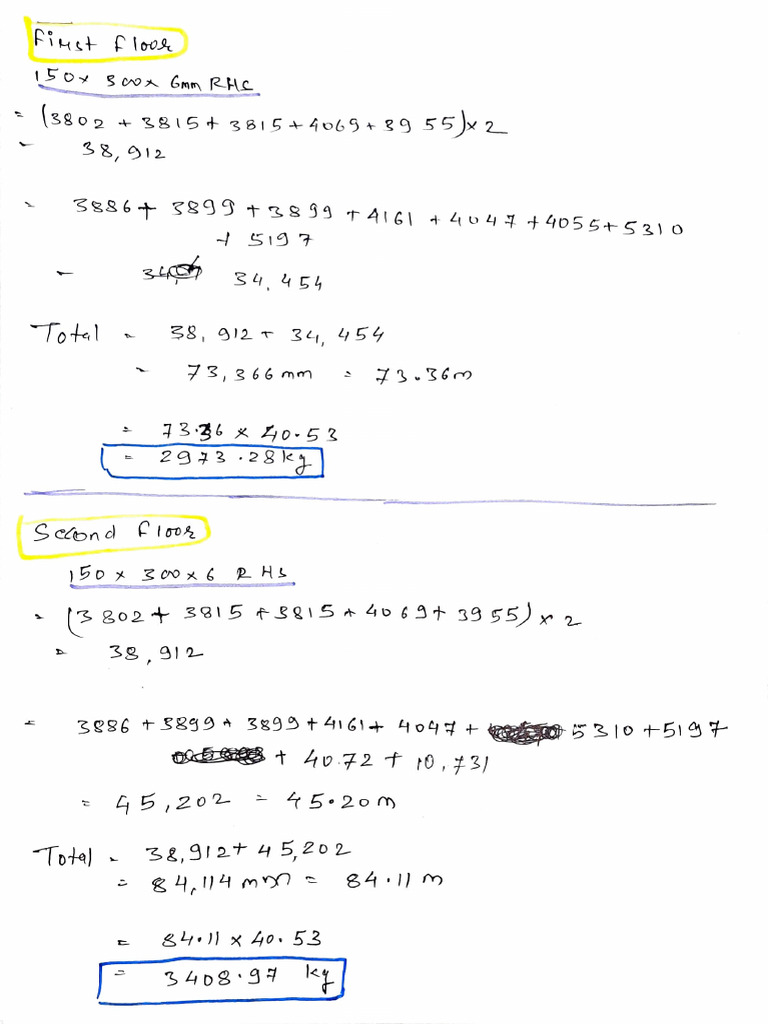 First floor
150x 300x 6mm RHC
= (3802 + 3815 + 3815 + 4069 + 3955) x 2
= 38,912
= 3886 + 3899 + 3899 + 4161 + 4047 + 4055 + 5310
+ 5197
= 34,454
Total = 38,912 + 34,454
= 73,366mm = 73.36m
= 73.36 x 40.53
= 2973.28kg
Second floor
150 x 300x6 RHS
= (3802 + 3815 + 3815 + 4069 + 3955) x 2
= 38,912
= 3886 + 3899 + 3899 + 4161 + 4047 + 5310 + 5197
+ 40.72 + 10,731
= 45,202 = 45.20m
Total = 38,912 + 45,202
= 84,114 mm = 84.11 m
= 84.11 x 40.53
= 3408.97 kg